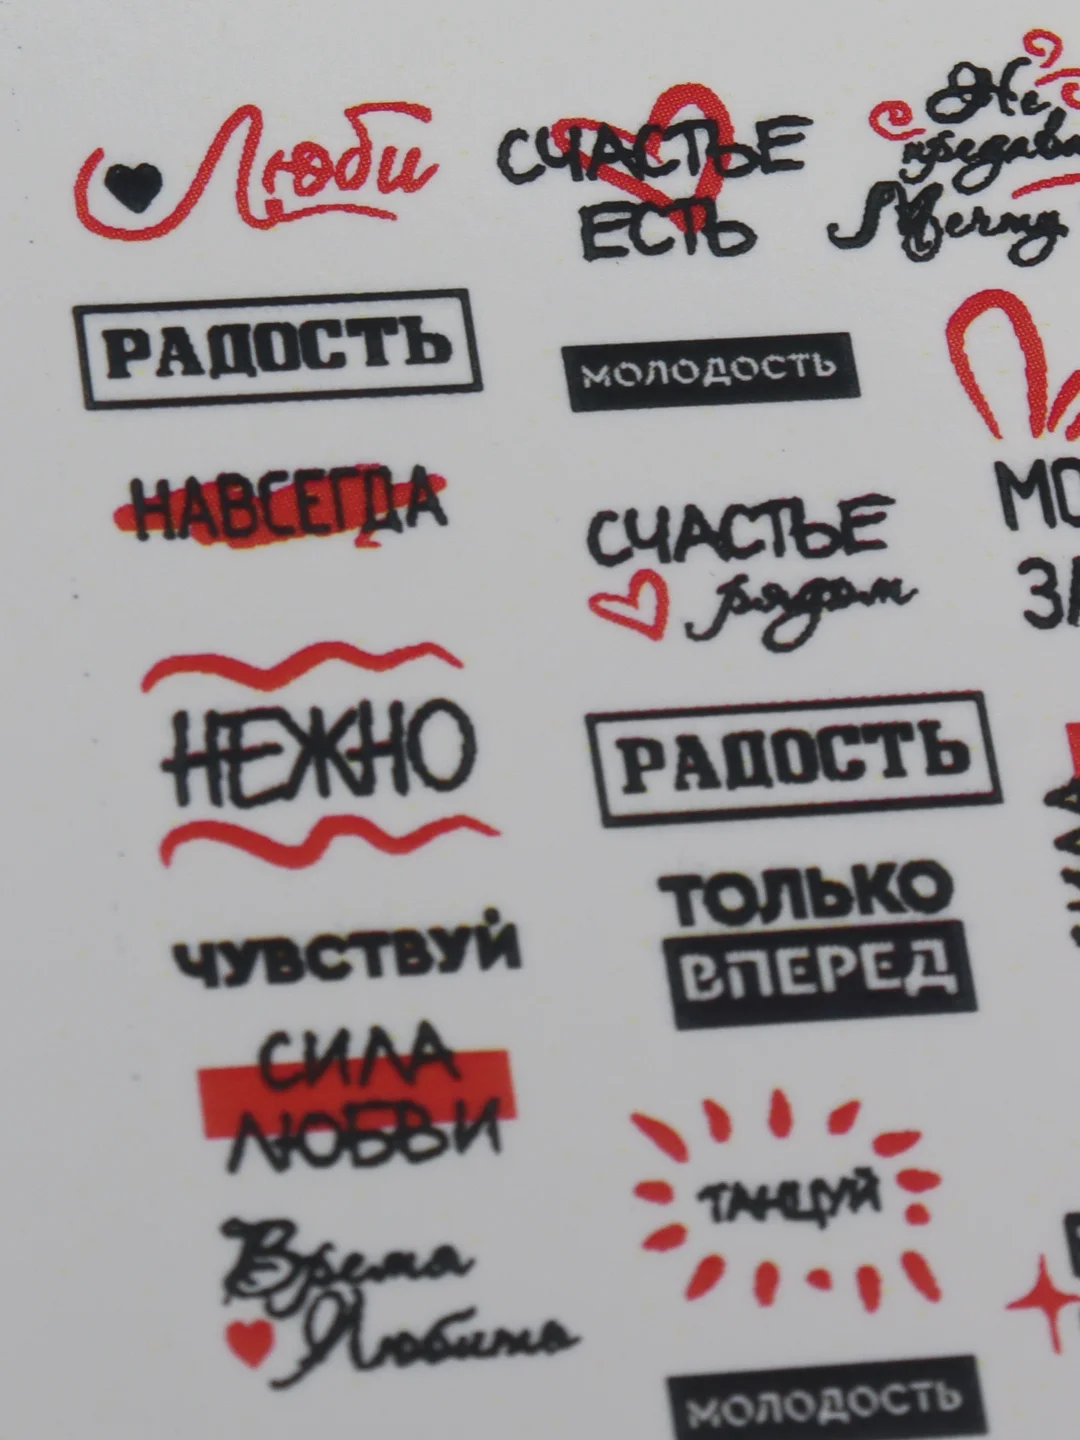 Люби
СЧАСТЬЕ
ЕСТЬ
Не
Мечту
РАДОСТЬ
МОЛОДОСТЬ
НАВСЕГДА
СЧАСТЬЕ
рядом
НЕЖНО
РАДОСТЬ
ЧУВСТВУЙ
ТОЛЬКО
ВПЕРЕД
СИЛА
ЛЮБВИ
ТАНЦУЙ
Время
Любить
МОЛОДОСТЬ